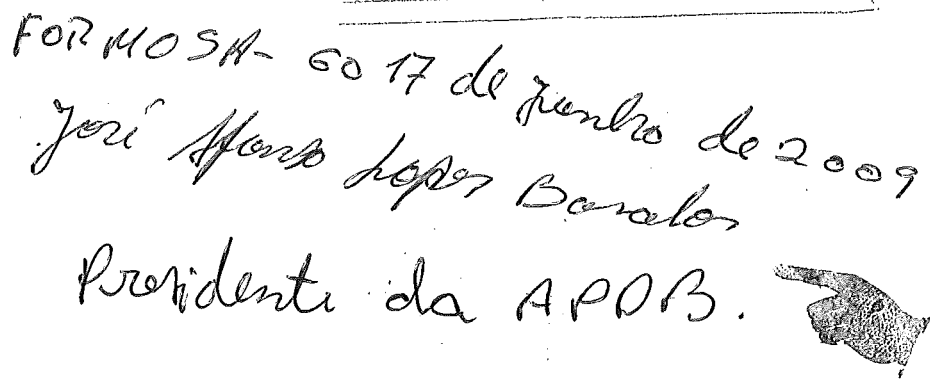 FORMOSA- GO 17 de Junho de 2009
José Afonso Lopes
Presidente da APDB.